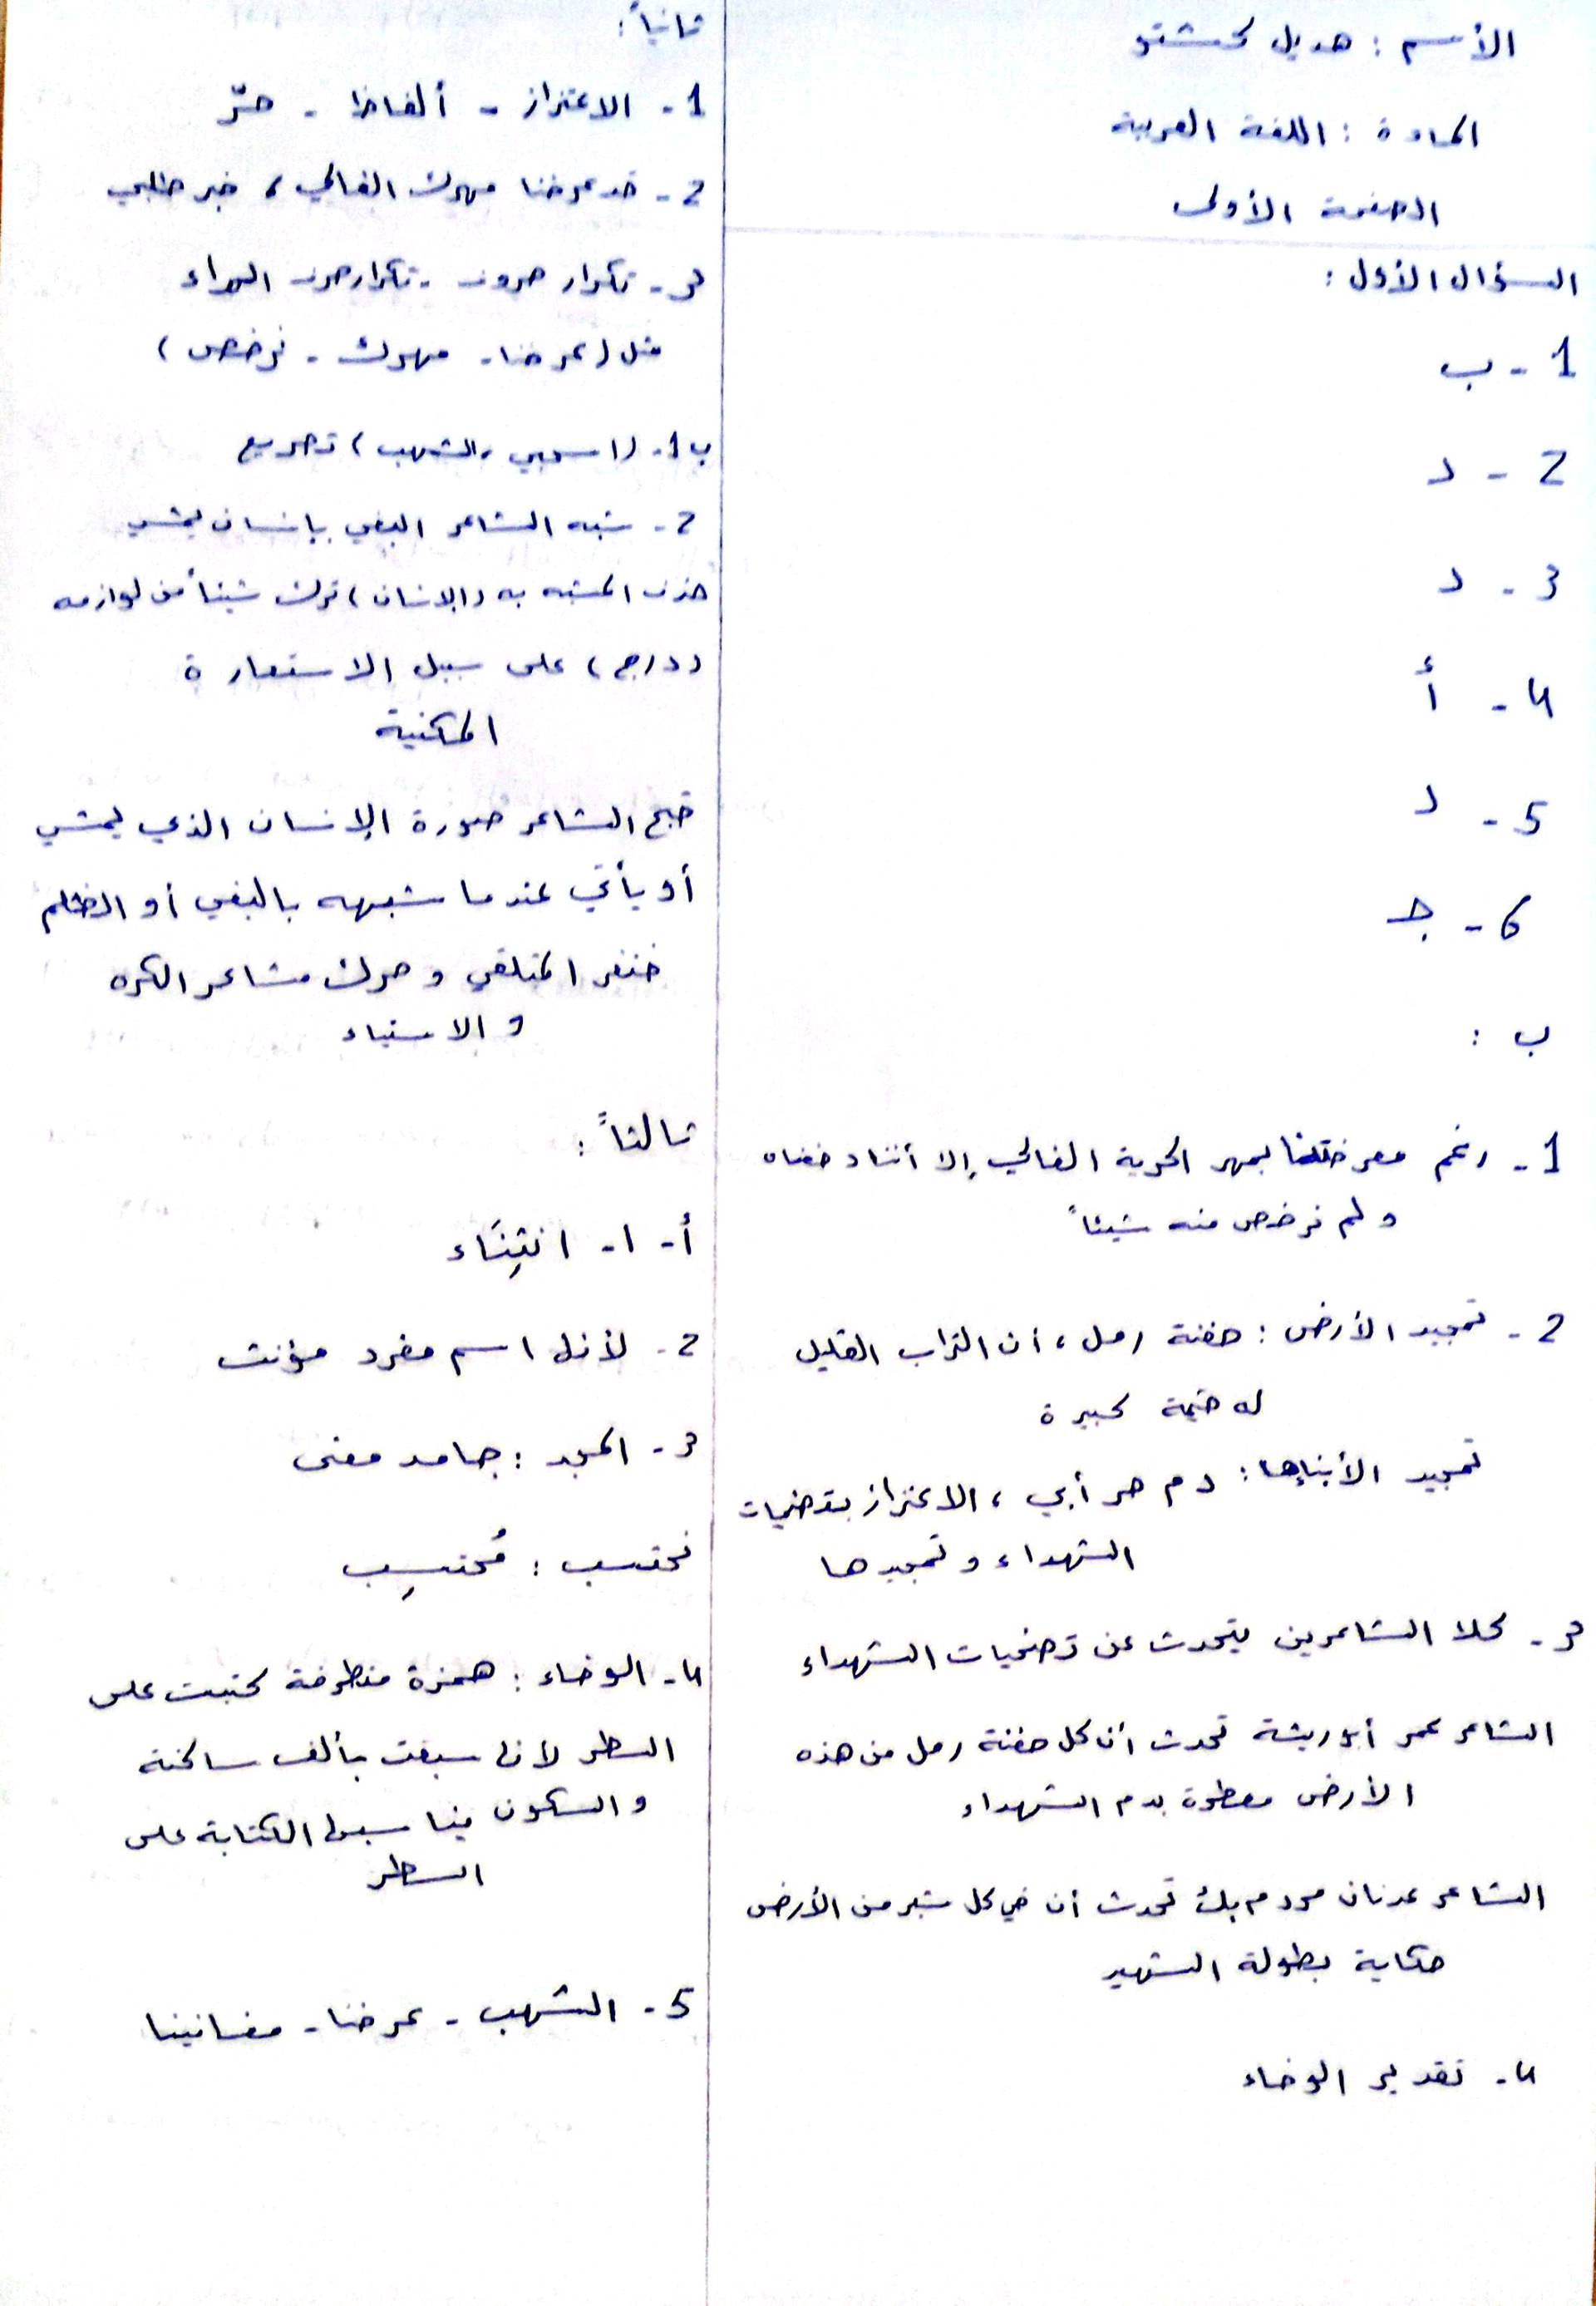 الأسم : هديل كشتو
المادة : اللغة العربية
الصفحة الأولى
السؤال الأول :
1 - ب
2 - د
3 - د
4 - أ
5 - د
6 - جـ
ب :
1 - رغم معرفتنا بمهر الحرية الغالي إلا أننا دفعناه
ولم نرخص منه شيئاً
2 - تمجيد الأرض : حفنة رمل ، أن التراب القليل
له قيمة كبيرة
تمجيد الأبناء : دم حر أبي ، الاعتزاز بتضحيات
الشهداء وتمجيدها
3 - كلا الشاعرين يتحدث عن تضحيات الشهداء
الشاعر عمر أبو ريشة تحدث أن كل حفنة رمل من هذه
الأرض معطرة بدم الشهداء
الشاعر عدنان مردم بك تحدث أن في كل شبر من الأرض
حكاية بطولة الشهيد
4 - تقدير الوفاء
ثانياً :
1 - الاعتزاز - ألفاظ - حرّ
2 - قد عرفنا مهرك الغالي ، خبر طلبي
3 - تكرار حروف - تكرار حرف الراء
مثل (عرفنا - مهرك - نرخص)
ب 1 - (اسحبي ، الشهب) تصريع
2 - شبه الشاعر البغي بإنسان يمشي
حذف المشبه به (الإنسان) ترك شيئاً من لوازمه
(درج) على سبيل الاستعارة
المكنية
قبح الشاعر صورة الإنسان الذي يمشي
أو يأتي عندما شبهه بالبغي أو الظلم
فنفر المتلقي وحرك مشاعر الكره
والاستياء
ثالثاً :
أ - 1 - انتِشَاء
2 - لأنها اسم مفرد مؤنث
3 - المجد : جامد معنى
نحتسب : مُحتسِب
4 - الوفاء : همزة متطرفة كتبت على
السطر لأنها سبقت بألف ساكنة
والسكون يناسبها الكتابة على
السطر
5 - الشهب - عرفنا - مغانينا